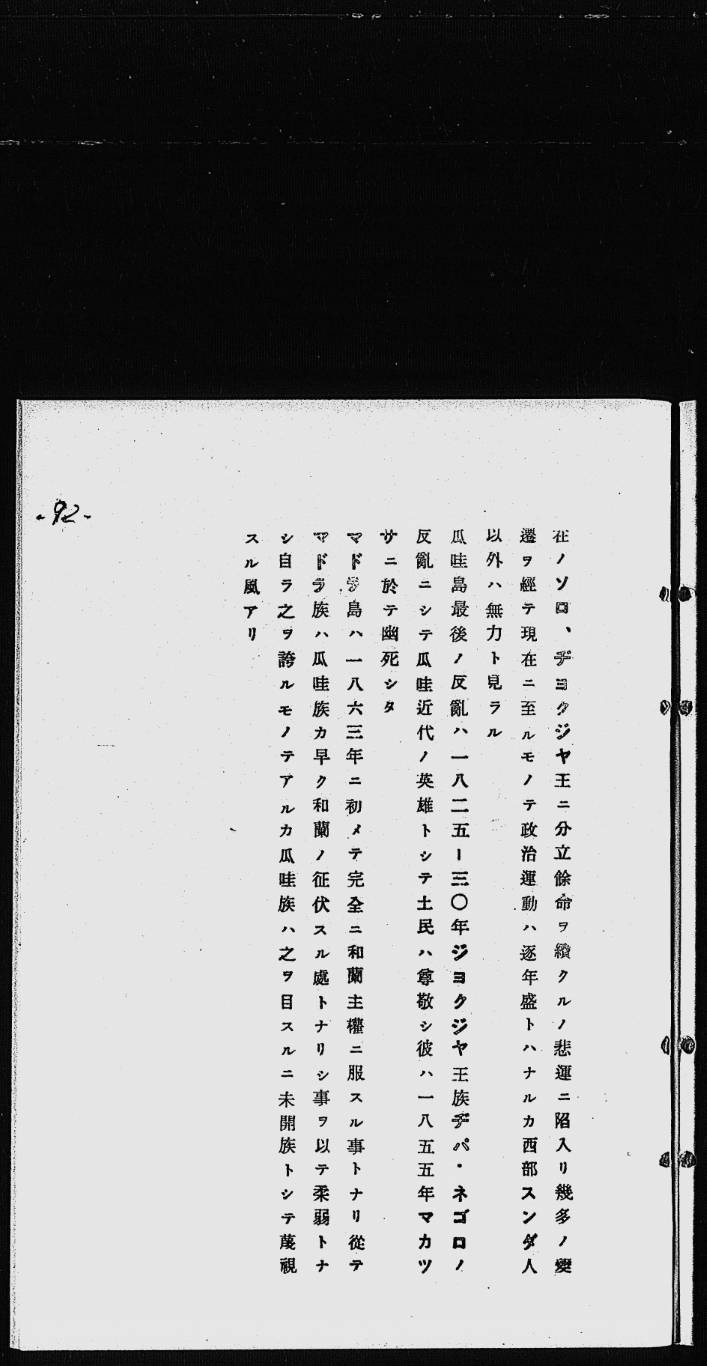 在ノソロ、ヂヨクジヤ王ニ分立餘命ヲ續クルノ悲運ニ陷入リ幾多ノ變
遷ヲ經テ現在ニ至ルモノテ政治運動ハ逐年盛トハナルカ西部スンダ人
以外ハ無力ト見ラル
瓜哇島最後ノ反亂ハ一八二五ー三〇年ジヨクジヤ王族ヂパ・ネゴロノ
反亂ニシテ瓜哇近代ノ英雄トシテ土民ハ尊敬シ彼ハ一八五五年マカツ
サニ於テ幽死シタ
マドラ島ハ一八六三年ニ初メテ完全ニ和蘭主權ニ服スル事トナリ從テ
マドラ族ハ瓜哇族カ早ク和蘭ノ征伏スル處トナリシ事ヲ以テ柔弱トナ
シ自ラ之ヲ誇ルモノテアルカ瓜哇族ハ之ヲ目スルニ未開族トシテ蔑視
スル風アリ
-92-